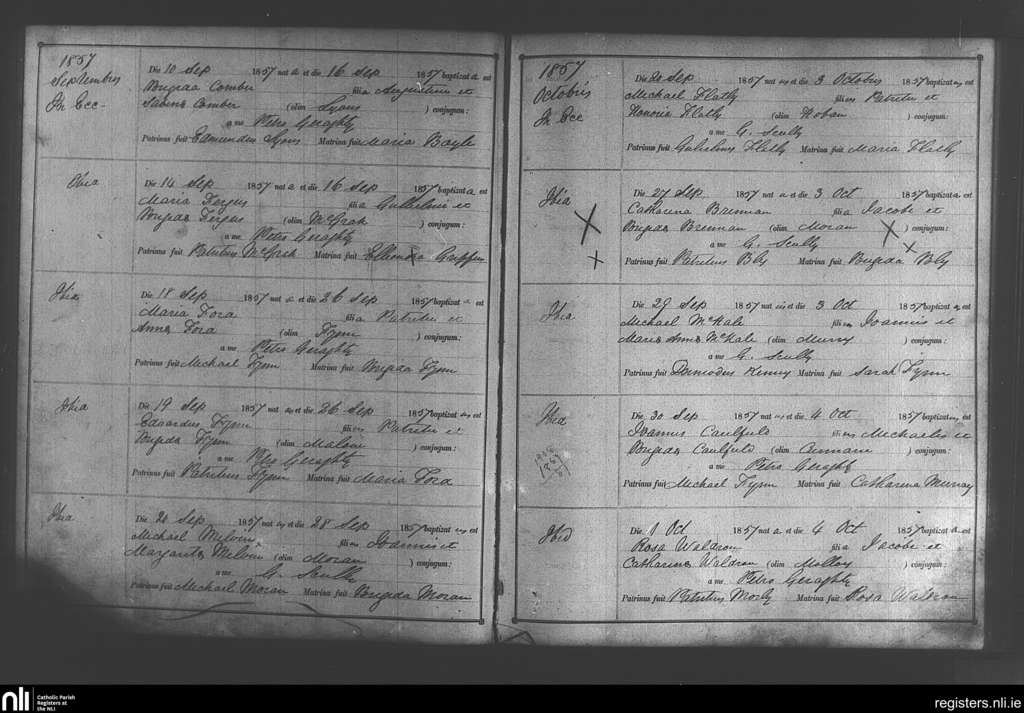 1857
Septembris
In Ecc-
Die 10 Sep 1857 nat a et die 16 Sep 1857 baptizat a est
Brigida Comber filia Augustini et
Comber (olim Lyons ) conjugum:
a me Petro Geraghty
Patrinus fuit Edmundus Lyons Matrina fuit Maria Boyle
Ibia
Die 14 Sep 1857 nat a et die 16 Sep 1857 baptizat a est
Maria Fergus filia Gulielmi et
Brigidae Fergus (olim McGrah ) conjugum:
a me Petro Geraghty
Patrinus fuit Patritius McGrah Matrina fuit Griffin
Ibia
Die 18 Sep 1857 nat a et die 26 Sep 1857 baptizat a est
Maria Fora filia Patritii et
Annae Fora (olim Flynn ) conjugum:
a me Petro Geraghty
Patrinus fuit Michael Flynn Matrina fuit Brigida Flynn
Ibia
Die 19 Sep 1857 nat us et die 26 Sep 1857 baptizat us est
Edoardus Flynn filius Patritii et
Brigida Flynn (olim Malone ) conjugum:
a me Petro Geraghty
Patrinus fuit Patritius Flynn Matrina fuit Maria Fora
Ibia
Die 20 Sep 1857 nat us et die 28 Sep 1857 baptizat us est
Michael Melvin filius Joannis et
Margarita Melvin (olim Moran ) conjugum:
a me G. Scully
Patrinus fuit Michael Moran Matrina fuit Brigida Moran
1857
Octobris
In Ecc
Die 20 Sep 1857 nat us et die 3 Octobris 1857 baptizat us est
Michael Flatly filius Patritii et
Honoria Flatly (olim Hoban ) conjugum:
a me G. Scully
Patrinus fuit Gulielmus Flatly Matrina fuit Maria Flatly
Ibia
Die 27 Sep 1857 nat a et die 3 Oct 1857 baptizat a est
Catharina Brennan filia Jacobi et
Brigidae Brennan (olim Moran ) conjugum:
a me G. Scully
Patrinus fuit Patritius Bly Matrina fuit Brigida Bly
Ibia
Die 29 Sep 1857 nat us et die 3 Oct 1857 baptizat us est
Michael McHale filius Joannis et
Maria Anna McHale (olim Murry ) conjugum:
a me G. Scully
Patrinus fuit Kenny Matrina fuit Sarah Flynn
Ibid
Die 30 Sep 1857 nat us et die 4 Oct 1857 baptizat us est
Joannis Caulfuld filius Michaelis et
Brigidae Caulfuld (olim ) conjugum:
a me Petro Geraghty
Patrinus fuit Michael Flynn Matrina fuit Catharina Murray
Ibid
Die 1 Oct 1857 nat a et die 4 Oct 1857 baptizat a est
Rosa Waldron filia Jacobi et
Catharina Waldron (olim Molloy ) conjugum:
a me Petro Geraghty
Patrinus fuit Patritius Morly Matrina fuit Rosa Waldron
nli
Catholic Parish
Registers at
the NLI
registers.nli.ie